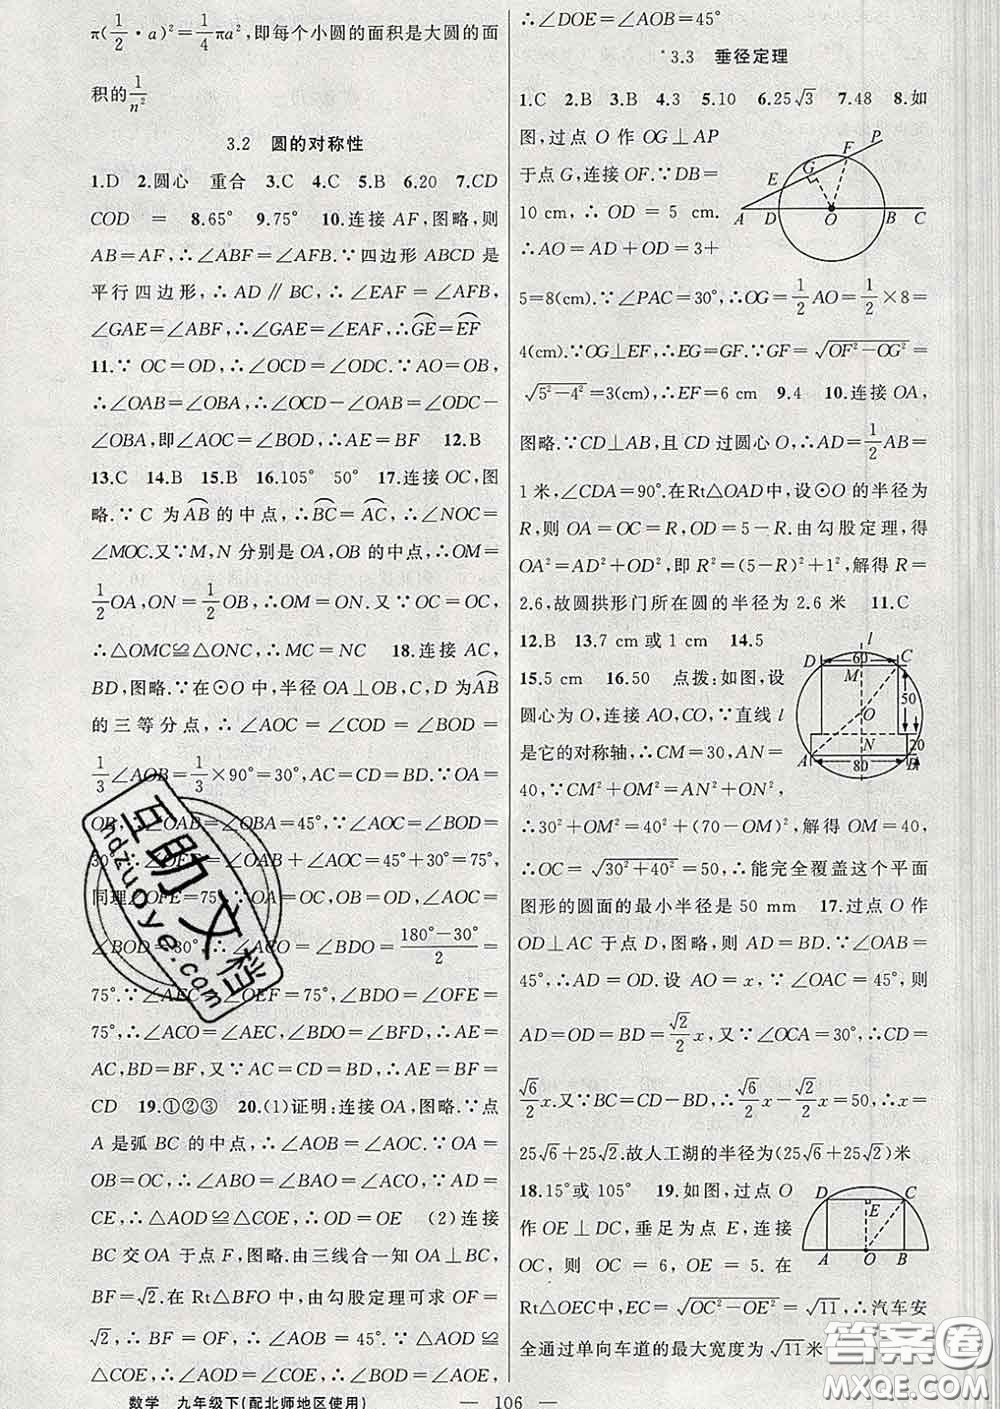 π(1/2·a)²=1/4πa²,即每个小圆的面积是大圆的面
积的1/n²
3.2 圆的对称性
1.D 2.圆心 重合 3.C 4.C 5.B 6.20 7.CD
COD = 8.65° 9.75° 10.连接 AF,图略,则
AB=AF,∴∠ABF=∠AFB.∵四边形 ABCD 是
平行四边形,∴AD∥BC,∴∠EAF=∠AFB,
∠GAE=∠ABF,∴∠GAE=∠EAF,∴⌒GE=⌒EF
11.∵ OC=OD,∴∠OCD=∠ODC.∵AO=OB,
∴∠OAB=∠OBA,∴∠OCD-∠OAB=∠ODC-
∠OBA,即∠AOC=∠BOD,∴AE=BF 12.B
13.C 14.B 15.B 16.105° 50° 17.连接 OC,图
略.∵ C 为⌒AB的中点,∴⌒BC=⌒AC,∴∠NOC=
∠MOC.又∵M,N 分别是 OA,OB 的中点,∴OM=
1/2OA,ON=1/2OB,∴OM=ON.又∵OC=OC,
∴△OMC≌△ONC,∴MC=NC 18.连接 AC,
BD,图略.∵在⊙O 中,半径 OA⊥OB,C,D 为⌒AB
的三等分点,∴∠AOC=∠COD=∠BOD=
1/3∠AOB=1/3×90°=30°,AC=CD=BD.∵OA=
OB,∴∠OAB=∠OBA=45°,∵∠AOC=∠BOD=
30°,∴∠OEF=∠OAB+∠AOC=45°+30°=75°,
同理∠OFE=75°.∵OA=OC=OB,∠AOC=
∠BOD=30°,∴∠ACO=∠BDO=(180°-30°)/2=
75°.∵∠AEC=∠OEF=75°,∠BDO=∠OFE=
75°,∴∠ACO=∠AEC,∠BDO=∠BFD,∴AE=
AC,BD=BF,又∵AC=CD=BD,∴AE=BF=
CD 19.①②③ 20.(1)证明:连接 OA,图略.∵点
A 是弧 BC 的中点,∴∠AOB=∠AOC.∵OA=
OB=OC,∴∠ABO=∠OAC.又∵AD=
CE,∴△AOD≌△COE,∴OD=OE (2)连接
BC交OA于点F,图略.由三线合一知 OA⊥BC,
BF=√2.在 Rt△BFO 中,由勾股定理可求 OF=
√2,∴BF=OF,∴∠AOB=45°.∵△AOD≌
△COE,∴∠AOD=∠COE,∴∠AOE=∠COE,
∴∠DOE=∠AOB=45°
3.3 垂径定理
1.C 2.B 3.B 4.3 5.10 6.25√3 7.48 8.如
图,过点 O 作 OG⊥AP
于点G,连接OF.∵DB=
10 cm,∴ OD = 5 cm.
∴AO=AD+OD=3+
5=8(cm).∵∠PAC=30°,∴OG=1/2AO=1/2×8=
4(cm).∵OG⊥EF,∴EG=GF.∵GF=√(OF²-OG²)=
√(5²-4²)=3(cm),∴EF=6 cm 9.4 10.连接OA,
图略.∵CD⊥AB,且 CD 过圆心 O,∴AD=1/2AB=
1米,∠CDA=90°.在Rt△OAD中,设⊙O的半径为
R,则 OA=OC=R,OD=5-R.由勾股定理,得
OA²=AD²+OD²,即 R²=(5-R)²+1²,解得 R=
2.6,故圆拱形门所在圆的半径为 2.6 米 11.C
12.B 13.7 cm 或 1 cm 14.5
15.5 cm 16.50 点拨:如图,设
圆心为O,连接AO,CO,∵直线l
是它的对称轴,∴CM=30,AN=
40,∵CM²+OM²=AN²+ON²,
∴30²+OM²=40²+(70-OM)²,解得 OM=40,
∴OC=√(30²+40²)=50,∴能完全覆盖这个平面
图形的圆面的最小半径是 50 mm 17.过点 O 作
OD⊥AC 于点 D,图略,则 AD=BD.∵∠OAC=
45°,∴AD=OD.设 AO=x,∵∠OAC=45°,则
AD=OD=BD=√2/2x,又∵∠OCA=30°,∴CD=
√6/2x.又∵BC=CD-BD,∴√6/2x-√2/2x=50,∴x=
25√6+25√2.故人工湖的半径为(25√6+25√2)米
18.15°或 105° 19.如图,过点 O
作 OE⊥DC,垂足为点 E,连接
OC,则 OC=6,OE=5.在
Rt△OEC中,EC=√(OC²-OE²)=√11,∴汽车安
全通过单向车道的最大宽度为√11米
A D O B C E G F P
D 60 C l M 50 O N 20 A 80 B
D E C A O B
数学 九年级下(配北师地区使用)
— 106 —
互助文档
hdzuoye.com
答案圈
MXQE.COM